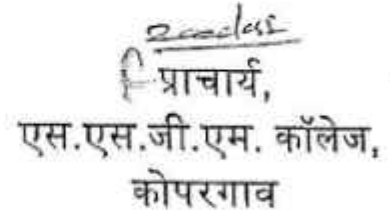 प्राचार्य,
एस.एस.जी.एम. कॉलेज,
कोपरगाव